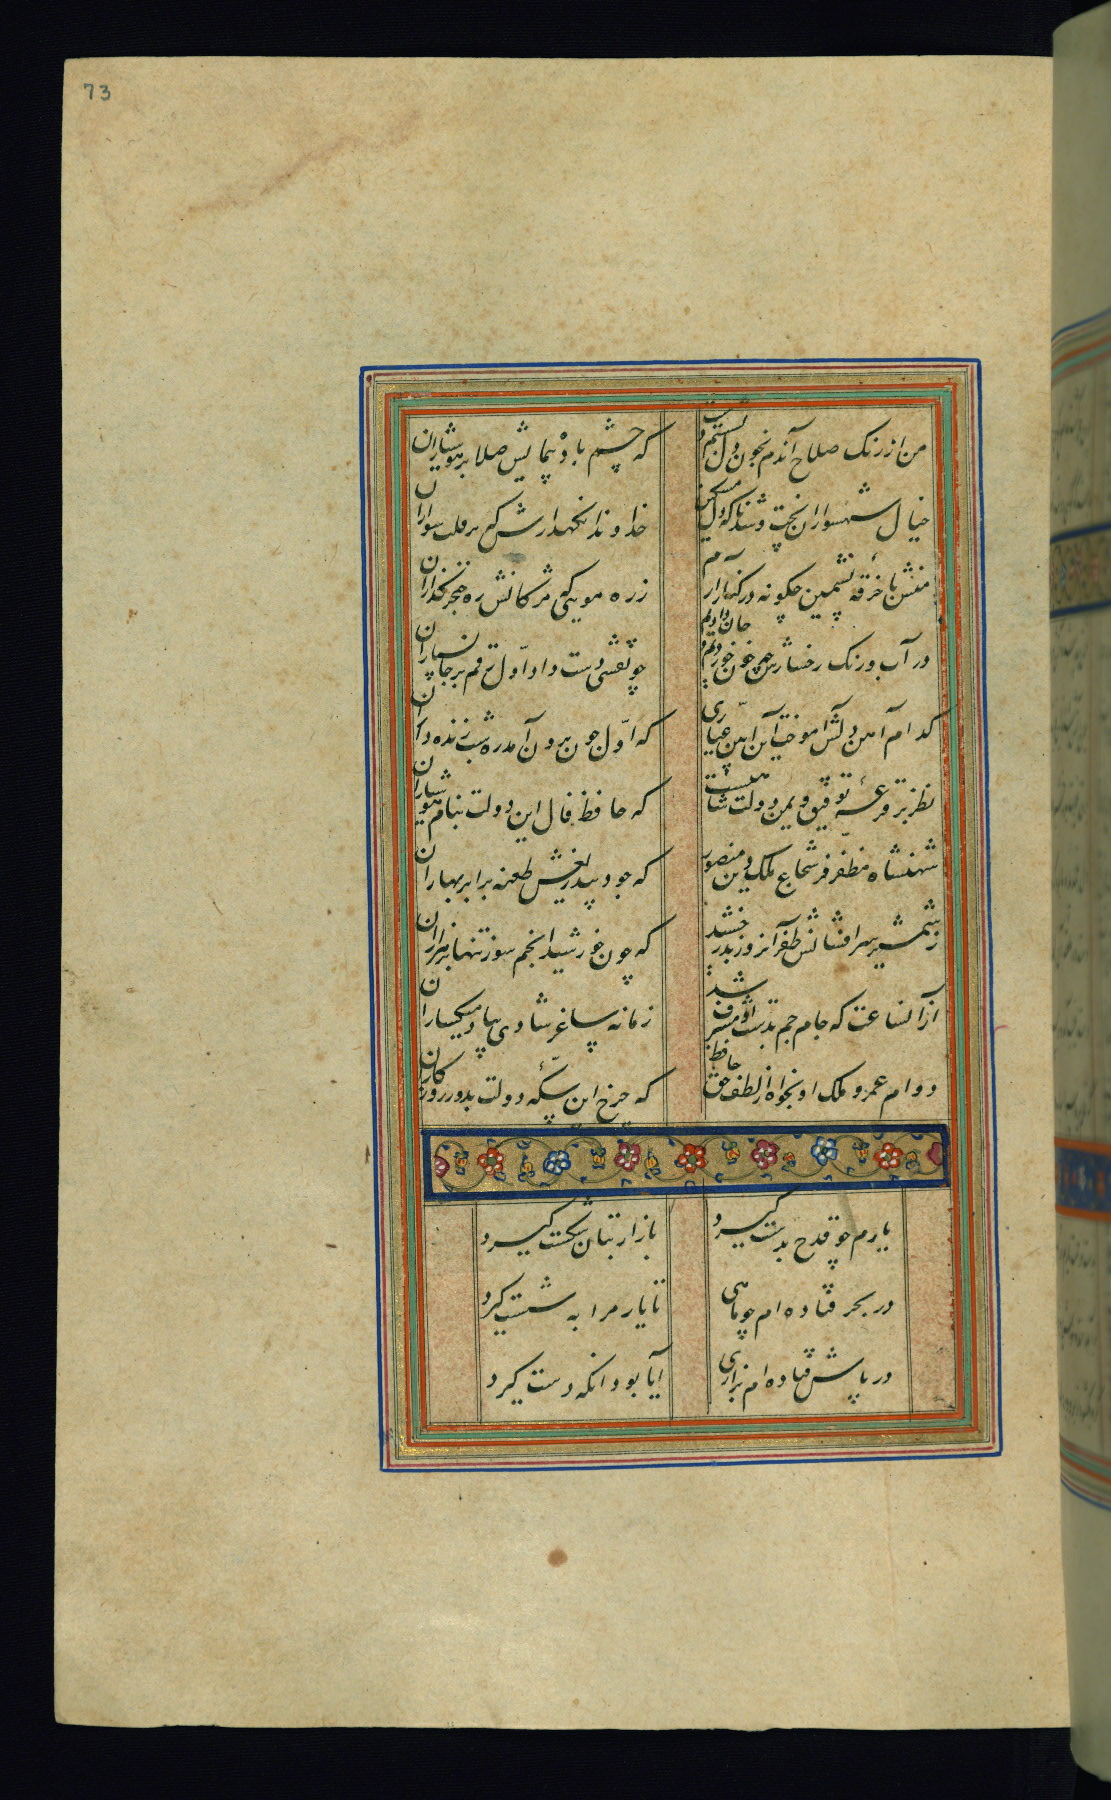 73
من از رنک صلاح آندم بخون دل بشستم دست که چشم باده پیمایش صلا بر هوشیاران
خیال شهسواران پخت و شد ناکه دل مسکین خداوندا نکهدارش که بر قلب سواران
منش با خرقه پشمین چکونه در کنار آرم زره مویی که مژکانش ره خنجر کذاران
در آب و رنک رخسارش چه خون خوردیم و جان دادیم چو نقشی دست داد اول رقم بر جان سپاران
کدام آهن دلش آموخت این آیین عیاری که اول چون برون آمد ره شب زنده داران
نظر بر قرعه توفیق و یمن دولت شاهست که حافظ فال این دولت بنام هوشیاران
شهنشاه مظفر فر شجاع ملک و دین منصور که جود بیدریغش طعنه بر ابر بهاران
ز شمشیر سر افشانش ظفر آنروز بدرخشید که چون خورشید انجم سوز تنها بر هزاران
از آنساعت که جام جم بدست او مشرف شد زمانه ساغر شادی بیاد میکساران
دوام عمر و ملک او بخواه از لطف حق حافظ که چرخ این سکه دولت بدور روزکاران
یارم چو قدح بدست کیرد بازار بتان شکست کیرد
در بحر فتاده ام چو ماهی تا یار مرا به شست کیرد
در پاش فتاده ام بزاری آیا بود انکه دست کیرد